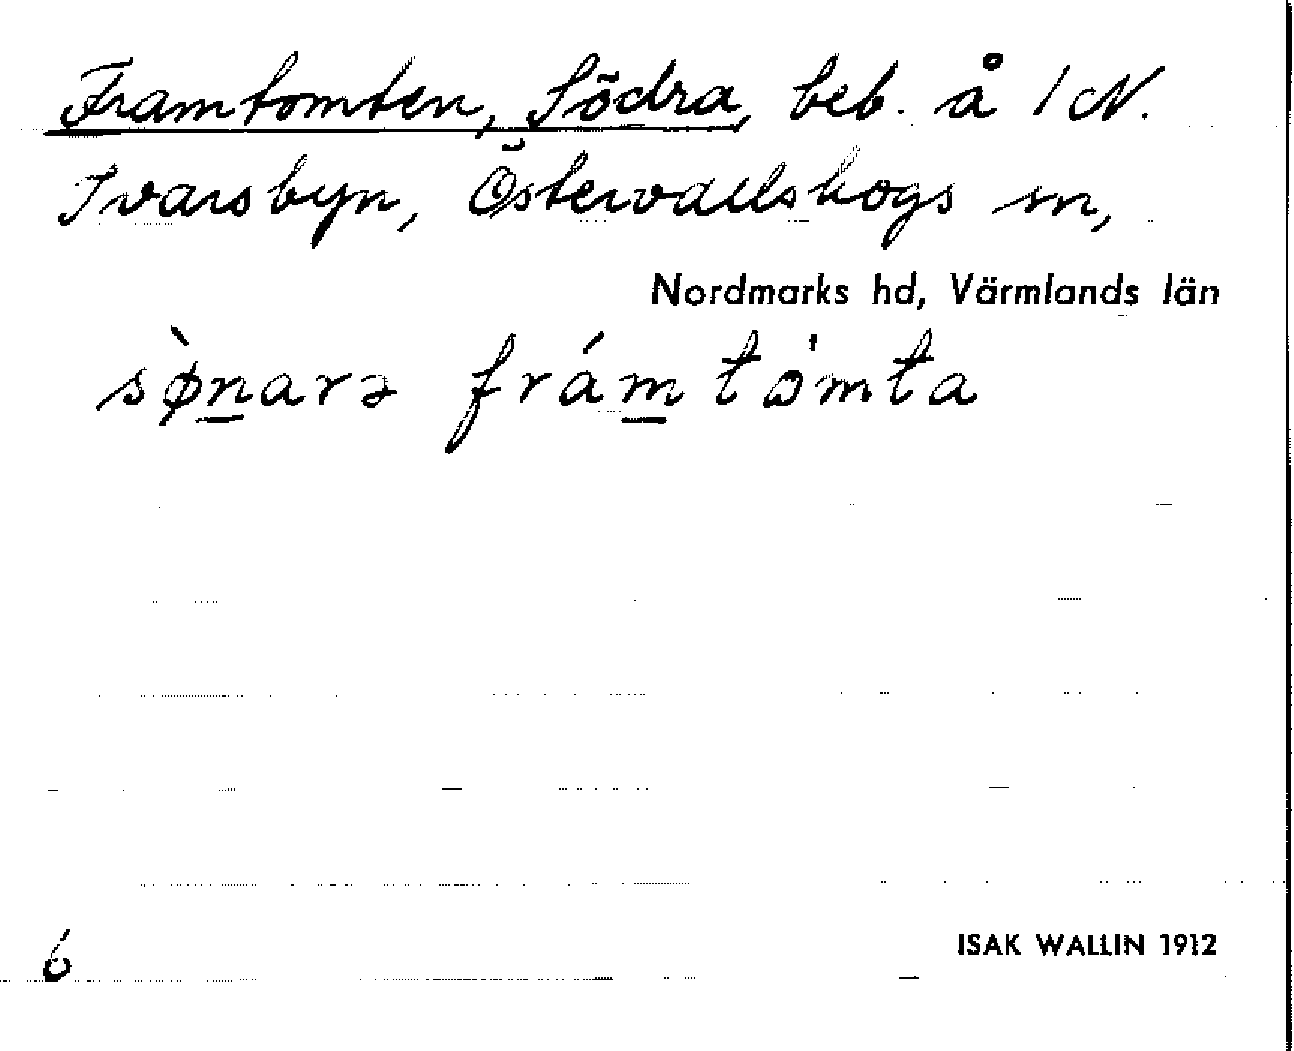 Framtomten, Södra, beb. å 1 N.
Ivarsbyn, Östervallskogs sn,
Nordmarks hd, Värmlands län
sø̀narə frám tòmta
6
ISAK WALLIN 1912